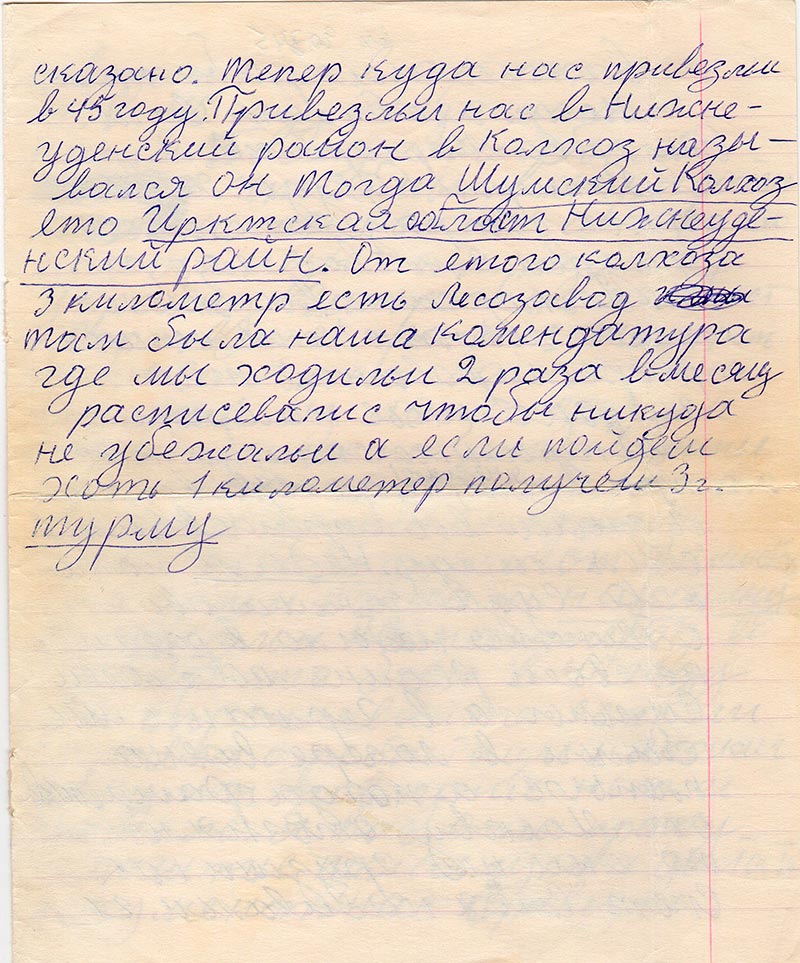 сказано. Тепер куда нас привезльи
в 45 году. Привезльи нас в Нижне-
уденский район в Колхоз назы-
вался он тогда Шумский Колхоз
ето Ирктская облост Нижнеуде-
нский райн. От етого колхоза
3 километр есть Лесозавод
там была наша комендатура
где мы ходильи 2 раза в месяц
расписевалис чтобы никуда
не убежальи а если пойдем
хоть 1 километер получем 3 г.
турму